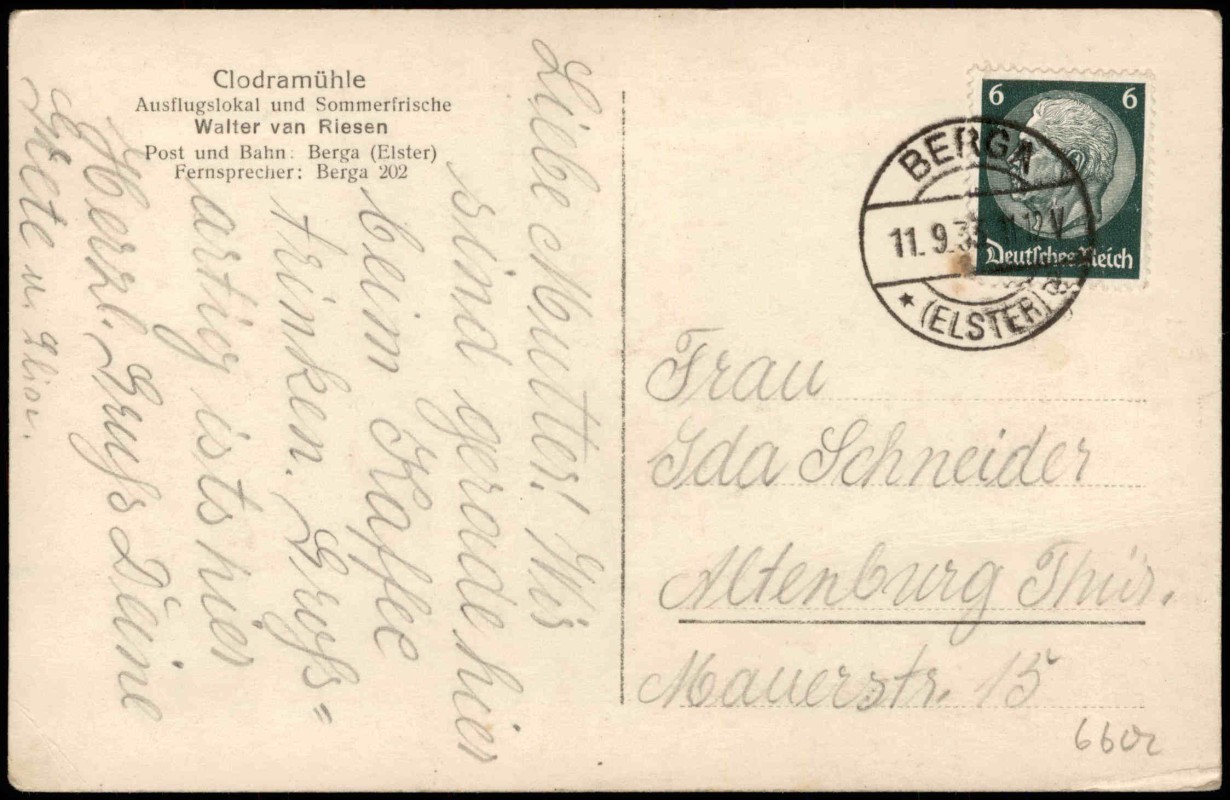 Clodramühle
Ausflugslokal und Sommerfrische
Walter van Riesen
Post und Bahn: Berga (Elster)
Fernsprecher: Berga 202
Liebe Mutter! Wir
sind gerade hier
beim Kaffee
trinken. Gross=
artig ists hier
Herzl. Gruss Deine
Grete u.
6 6
Deutsches Reich
BERGA
11.9.3 12 V
(ELSTER)
Frau
Ida Schneider
Altenburg Thür.
Mauerstr. 15